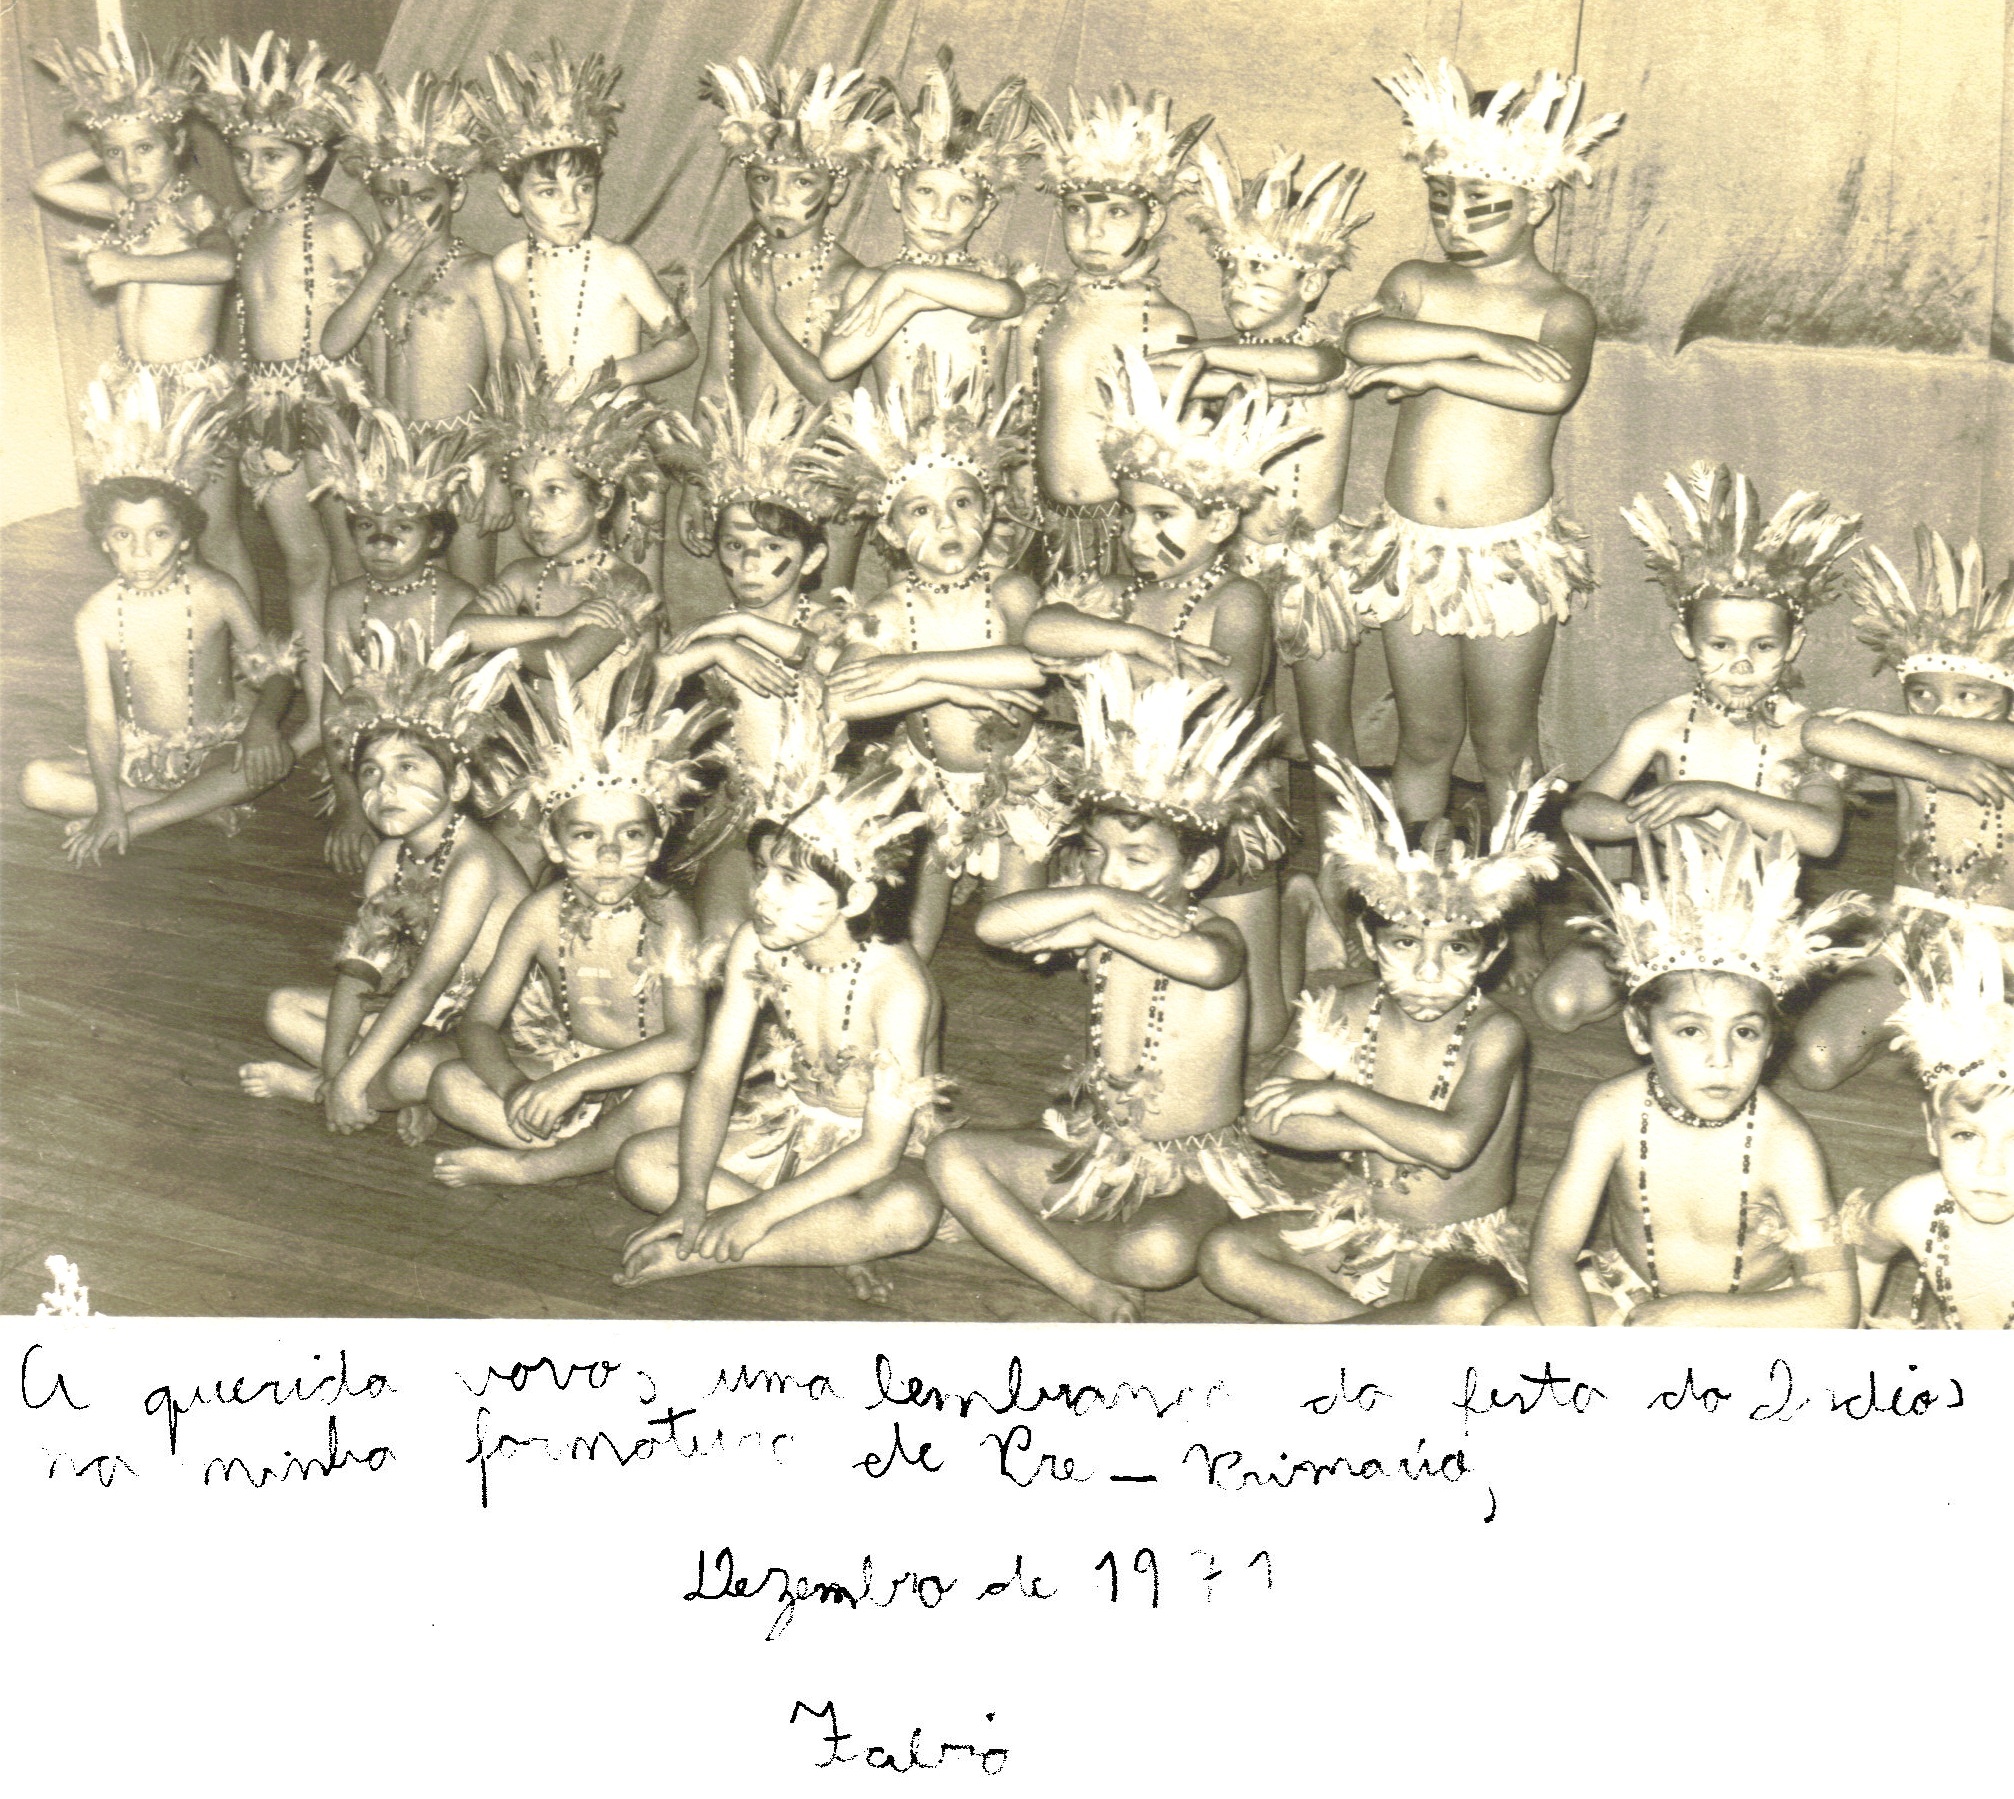 A querida vovo, uma lembrança da festa do Indios
na minha formatura de Pre - Primario,
Dezembro de 1971
Fabio